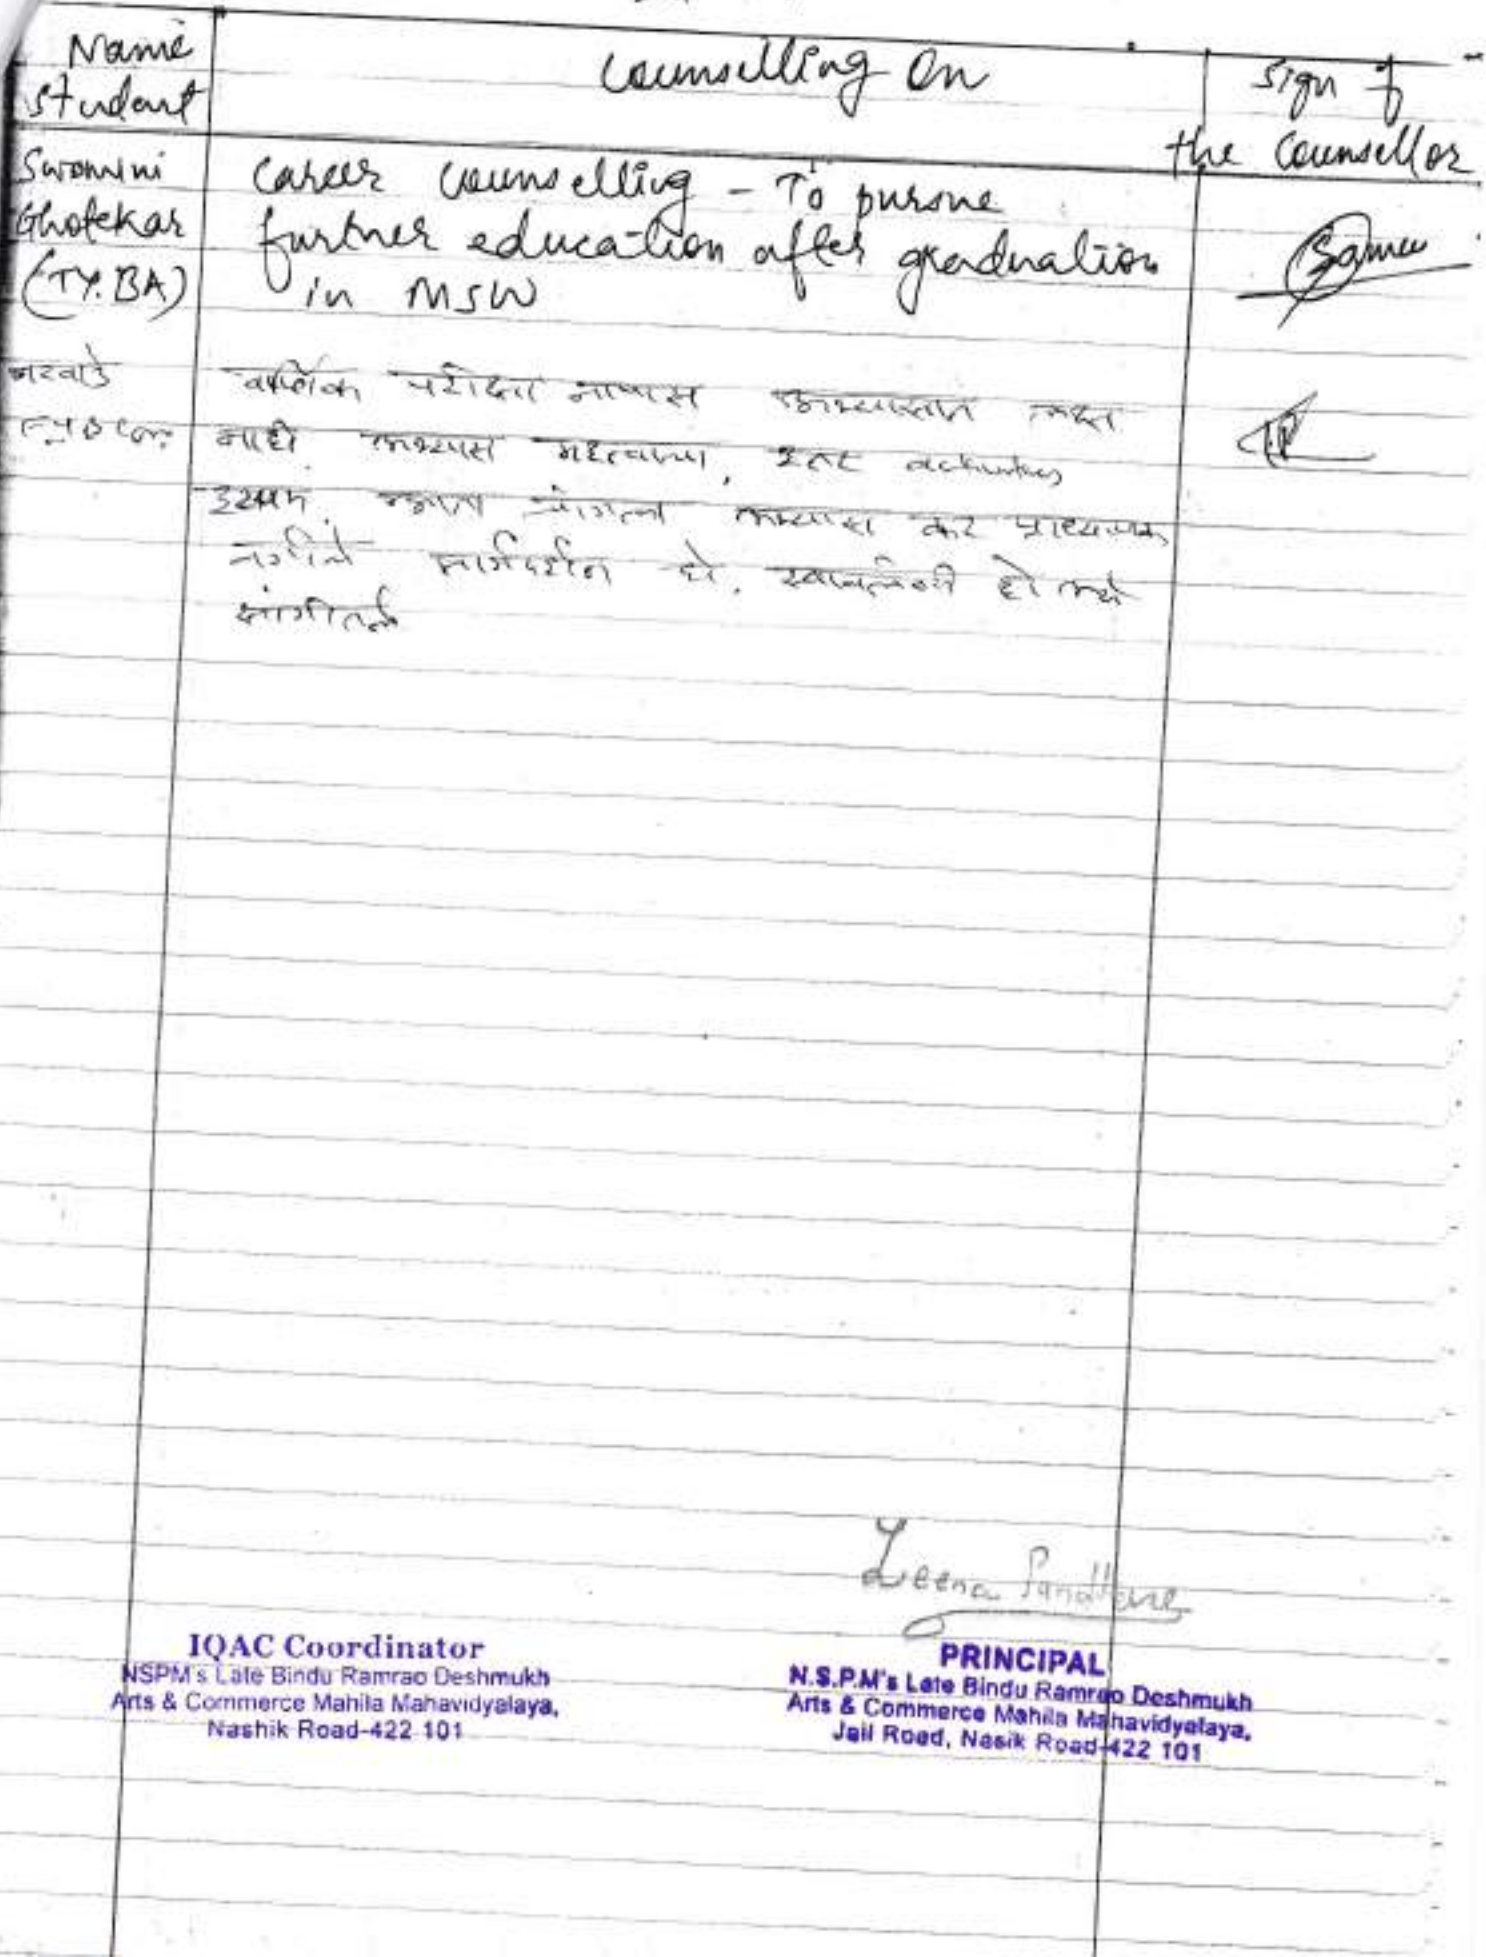 Name
student
Counselling On
sign of
the Counsellor
Swamini
Ghotekar
(TY.BA)
Career Counselling - To pursue
further education after graduation
in MSW
वार्षिक परीक्षा नापास अभ्यासात लक्ष
नाही. अभ्यास महत्वाचा, इतर activities
दुय्यम. चांगला अभ्यास कर प्राध्यापक
मार्गदर्शन घे. स्वावलंबी हो असे
सांगीतले
Leena Pandhare
IQAC Coordinator
NSPM's Late Bindu Ramrao Deshmukh
Arts & Commerce Mahila Mahavidyalaya,
Nashik Road-422 101
PRINCIPAL
N.S.P.M's Late Bindu Ramrao Deshmukh
Arts & Commerce Mahila Mahavidyalaya,
Jail Road, Nasik Road-422 101